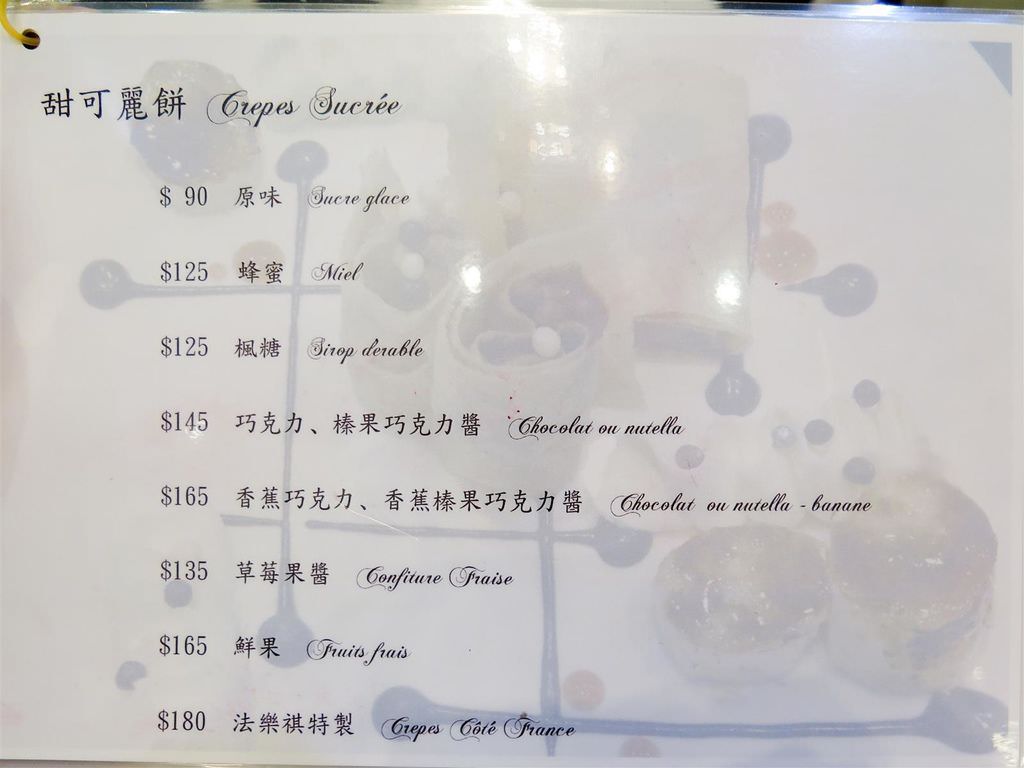 甜可麗餅 Crepes Sucrée
$ 90 原味 Sucre glace
$125 蜂蜜 Miel
$125 楓糖 Sirop d'erable
$145 巧克力、榛果巧克力醬 Chocolat ou nutella
$165 香蕉巧克力、香蕉榛果巧克力醬 Chocolat ou nutella - banane
$135 草莓果醬 Confiture Fraise
$165 鮮果 Fruits frais
$180 法樂祺特製 Crepes Côté France